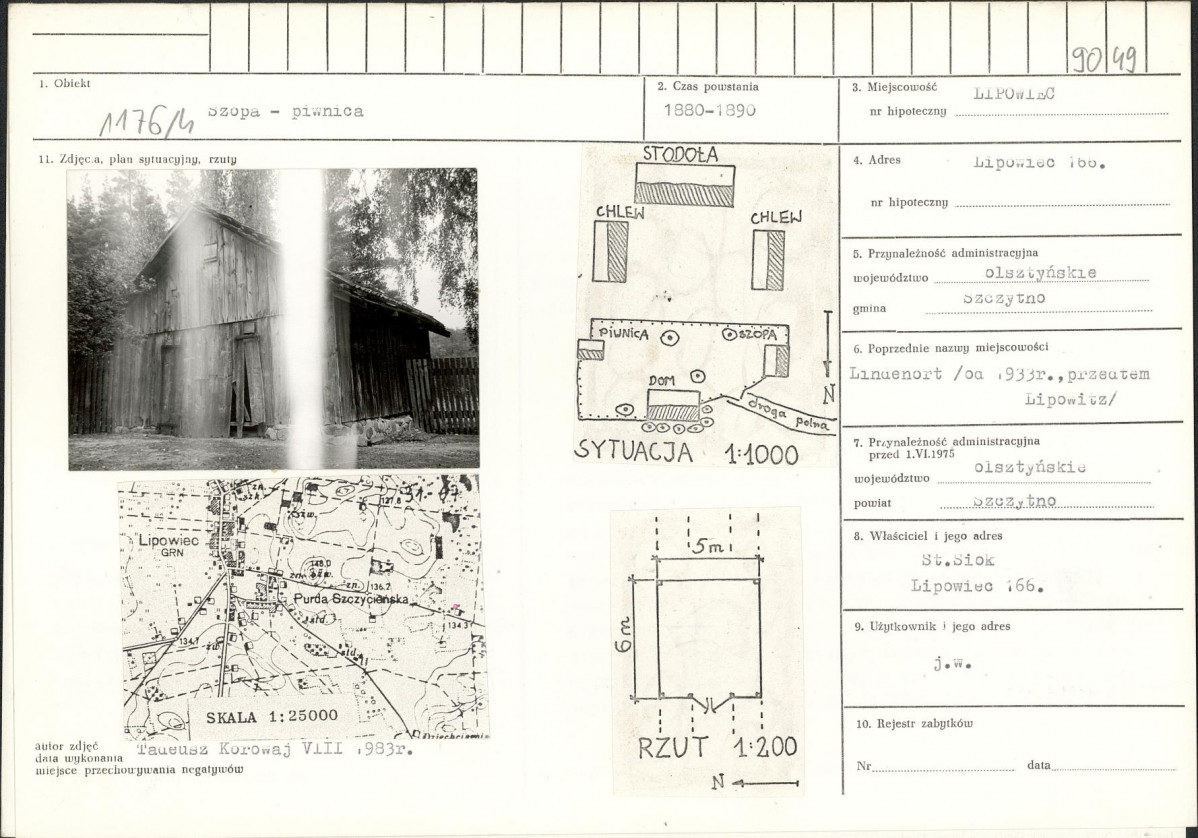 90 49
1. Obiekt
1176/4 Szopa - piwnica
2. Czas powstania
1880-1890
3. Miejscowość LIPOWIEC
nr hipoteczny
11. Zdjęc.a, plan sytuacyjny, rzuty
4. Adres Lipowiec 166.
nr hipoteczny
5. Przynależność administracyjna
województwo olsztyńskie
gmina Szczytno
6. Poprzednie nazwy miejscowości
Lindenort /od 1933r.,przedtem
Lipowitz/
7. Przynależność administracyjna
przed 1.VI.1975
województwo olsztyńskie
powiat Szczytno
8. Właściciel i jego adres
St.Siok
Lipowiec 166.
9. Użytkownik i jego adres
j.w.
10. Rejestr zabytków
Nr data
STODOŁA
CHLEW
CHLEW
PIWNICA
SZOPA
DOM
droga polna
N
SYTUACJA 1:1000
Lipowiec
GRN
137.8
148.0
136.2
Purda Szczycieńska
134.3
134.1
SKALA 1:25000
5m
6m
RZUT 1:200
N
autor zdjęć Tadeusz Korowaj VIII 1983r.
data wykonania
miejsce przechowywania negatywów